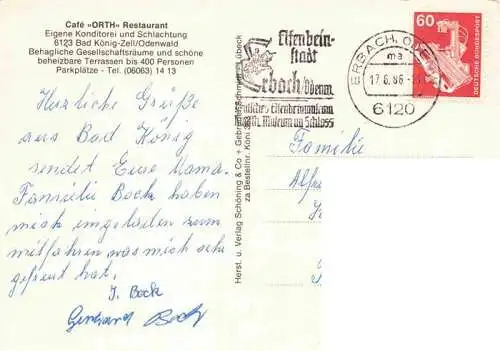 Café »ORTH« Restaurant
Eigene Konditorei und Schlachtung
6123 Bad König-Zell/Odenwald
Behagliche Gesellschaftsräume und schöne
beheizbare Terrassen bis 400 Personen
Parkplätze - Tel. (06063) 14 13
Herzliche Grüße
aus Bad König
sendet Eure Mama.
Familie Bock haben
mich eingeladen zum
mitfahren was mich sehr
gefreut hat.
J. Bock
Gerhard Bock
Herst. u. Verlag Schöning & Co + Gebrüder Schmidt, Lübeck
zu Bestellnr. Köni
Elfenbein-
stadt
Erbach/Odenw.
Deutsches Elfenbeinmuseum
Museum im Schloss
ERBACH, ODENW
ma
17.6.86
6120
60
DEUTSCHE BUNDESPOST
Familie